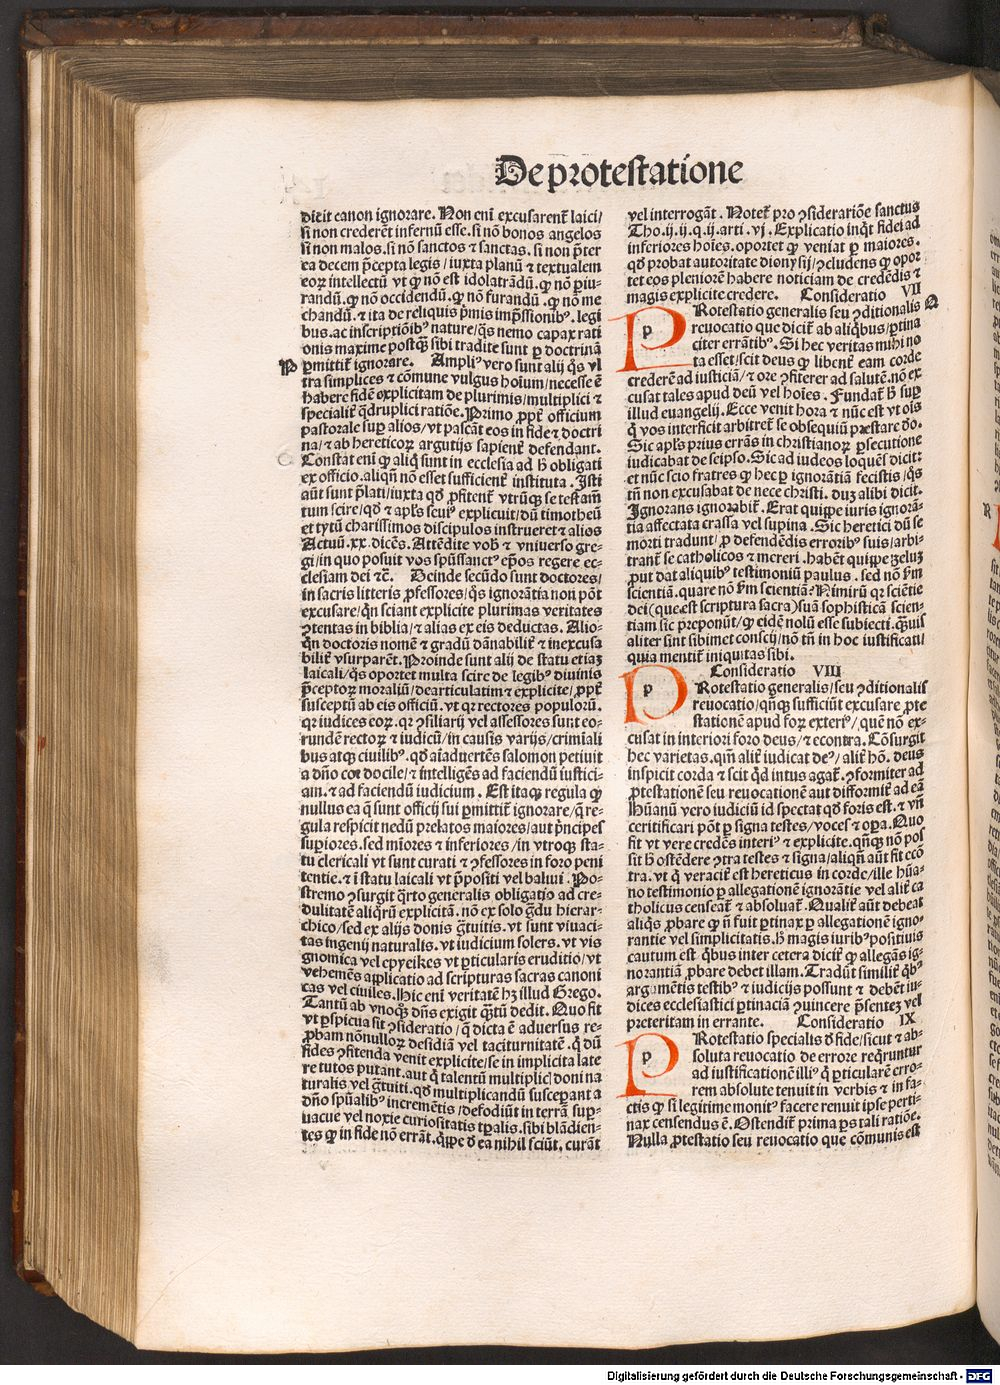 De protestatione
dicit canon ignorare. Non enī excusarent̄ laici/
si non crederēt infernū esse. si nō bonos angelos
si non malos. si nō sanctos ⁊ sanctas. si non p̄ter
ea decem p̄cepta legis / iuxta planū ⁊ textualem
eoꝝ intellectū vt ꝙ nō est idolatrādū. ꝙ nō ꝑiu-
randū. ꝙ nō occidendū. ꝙ nō furandū. ꝙ nō me
chandū. ⁊ ita de reliquis p̄mis imp̄ssionibꝰ. legi
bus. ac inscriptiōibꝰ nature / q̄s nemo capax rati
onis maxime postqȝ sibi tradite sunt ꝑ doctrinā
P ꝑmittit̄ ignorare. Ampliꝰ vero sunt alij q̄s vl
tra simplices ⁊ cōmune vulgus hoīum / necesse ē
habere fidē explicitam de plurimis / multiplici ⁊
specialit̄ q̄druplici ratiōe. Primo ꝓpt̄ officium
pastorale suꝑ alios / vt pascāt eos in fide ⁊ doctri
na / ⁊ ab hereticoꝝ argutijs sapient̄ defendant.
Constat enī ꝙ aliq̄ sunt in ecclesia ad h̄ obligati
ex officio. aliqn̄ nō esset sufficient̄ instituta. Isti
aūt sunt p̄lati / iuxta qd̄ ꝓfitent̄ vtrūqȝ se testam̄
tum scire / qd̄ ⁊ apl̄s seuiꝰ explicuit / dū timotheū
et tytū charissimos discipulos instrueret ⁊ alios
Actuū. xx. dicēs. Attēdite vob̄ ⁊ vniuerso gre-
gi / in quo posuit vos spūssanctꝰ ep̄os regere ec-
clesiam dei ⁊c̄. Deinde secūdo sunt doctores /
in sacris litteris ꝓfessores / q̄s ignorātia non pōt
excusare / qn̄ sciant explicite plurimas veritates
ꝯtentas in biblia / ⁊ alias ex eis deductas. Alio-
qn̄ doctoris nomē ⁊ gradū dānabilit̄ ⁊ inexcusa
bilit̄ vsurparēt. Proinde sunt alij de statu etiaȝ
laicali / q̄s oportet multa scire de legibꝰ diuinis
p̄ceptoꝝ moraliū / dearticulatim ⁊ explicite / ꝓpt̄
susceptū ab eis officiū. vt qꝛ rectores populorū.
qꝛ iudices eoꝝ. qꝛ ꝯsiliarij vel assessores sunt eo-
rundē rectoꝝ ⁊ iudicū / in causis varijs / crimīali
bus atqȝ ciuilibꝰ. qd̄ aīaduertēs salomon petiuit
a dn̄o cor docile / ⁊ intelligēs ad faciendū iustici-
am. ⁊ ad faciendū iudicium. Est itaqȝ regula ꝙ
nullus ea q̄ sunt officij sui ꝑmittit̄ ignorare / q̄ re-
gula respicit nedū prelatos maiores / aut p̄ncipes
suꝑiores. sed mīores ⁊ inferiores / in vtroqȝ sta-
tu clericali vt sunt curati ⁊ ꝯfessores in foro peni
tentie. ⁊ ī statu laicali vt p̄positi vel baliui. Po-
stremo ꝯsurgit q̄rto generalis obligatio ad cre-
dulitatē aliqrū explicitā. nō ex solo ḡdu hierar-
chico / sed ex alijs donis ḡtuitis. vt sunt viuaci-
tas ingenij naturalis. vt iudicium solers. vt vis
gnomica vel epyeikes vt ꝑticularis eruditio / vt
vehemēs applicatio ad scripturas sacras canoni
cas vel ciuiles. Hic enī veritatē hȝ illud Grego.
Tantū ab vnoqȝ dn̄s exigit qȝtū dedit. Quo fit
vt ꝑspicua sit ꝯsideratio / q̄ dicta ē aduersus re-
ꝓbam nōnulloꝝ desidiā vel taciturnitatē. q̄ dū
fides ꝯfitenda venit explicite / se in implicita late
re tutos putant. aut q̄ talentū multiplici doni na
turalis vel ḡtuiti. qd̄ multiplicandū susceperant a
dn̄o spūalibꝰ incremētis / defodiūt in terrā suꝑ-
uacue vel noxie curiositatis tꝑalis. sibi blādien-
tes ꝙ in fide nō errāt. q̄ppe d̄ ea nihil sciūt, curāt
vel interrogāt. Notet̄ pro ꝯsiderariōe sanctus
Tho. ij. ij. q. ij. arti. vj. Explicatio inq̄t fidei ad
inferiores hoīes. oportet ꝙ veniat ꝑ maiores.
qd̄ probat autoritate dionysij / ꝯcludens ꝙ opor
tet eos pleniorē habere noticiam de credēdis ⁊
magis explicite credere. Consideratio VII
PRotestatio generalis seu ꝯditionalis Q
reuocatio que dicit̄ ab aliq̄bus / ꝑtina
citer errātibꝰ. Si hec veritas mihi no
ta esset / scit deus ꝙ libent̄ eam corde
crederē ad iusticiā / ⁊ ore ꝯfiterer ad salutē. nō ex
cusat tales apud deū vel hoīes. Fundat̄ h̄ suꝑ
illud euangelij. Ecce venit hora ⁊ nūc est vt oīs
q̄ vos interficit arbitret̄ se obsequiū præstare dō.
Sic apl̄s prius errās in christianoꝝ ꝑsecutione
iudicabat de seipso. Sic ad iudeos loquēs dicit:
et nūc scio fratres ꝙ hec ꝑ ignorātiā fecistis / q̄s
tn̄ non excusabat de nece christi. duȝ alibi dicit.
Ignorans ignorabit̄. Erat quippe iuris ignorā-
tia affectata crassa vel supina. Sic heretici dū se
morti tradunt / ꝓ defendēdis erroribꝰ suis / arbi-
trant̄ se catholicos ⁊ mereri. habēt quippe ȝeluȝ
ꝓut dat aliquibꝰ testimoniū paulus. sed nō ẜm
scientiā. quare nō ẜm sciētiā? Nimirū qꝛ sciētie
dei (que est scriptura sacra) suā sophisticā scien-
tiam sic preponūt / ꝙ eidē nolū esse subiecti. q̄uis
aliter sint sibimet conscij / nō tn̄ in hoc iustificati /
quia mentit̄ iniquitas sibi.
Consideratio VIII
PRotestatio generalis / seu ꝯditionalis
reuocatio / qn̄qȝ sufficiūt excusare ꝓte
stationē apud foꝝ exteriꝰ / quē nō ex-
cusat in interiori foro deus / ⁊ econtra. Cōsurgit
hec varietas. qm̄ alit̄ iudicat deꝰ / alit̄ hō. deus
inspicit corda ⁊ scit qd̄ intus agat̄. ꝯformiter ad
ꝓtestationē seu reuocationē aut difformit̄ ad eā
Hūanū vero iudiciū id spectat qd̄ foris est. ⁊ vn̄
ceritificari pōt ꝑ signa testes / voces ⁊ oꝑa. Quo
fit vt vere credēs interiꝰ ⁊ explicite. qn̄qȝ nō pos
sit h̄ ostēdere ꝯtra testes ⁊ signa / aliqn̄ aūt fit ecō
tra. vt q̄ veracit̄ est hereticus in corde / ille hūa-
no testimonio ꝑ allegationē ignorātie vel alit̄ ca
tholicus censeat̄ ⁊ absoluat̄. Qualit̄ aūt debeat
aliq̄s ꝓbare ꝙ n̄ fuit ꝑtinax ꝑ allegationē igno-
rantie vel simplicitatis. h̄ magis iuribꝰ positiuis
cautum est q̄bus inter cetera dicit̄ ꝙ allegās ig-
norantiā ꝓbare debet illam. Tradūt similit̄ q̄bꝰ
argumētis testibꝰ ⁊ iudicijs possunt ⁊ debēt iu-
dices ecclesiastici ꝑtinaciā ꝯuincere p̄senteȝ vel
preteritam in errante. Consideratio IX
PRotestatio specialis d̄ fide / sicut ⁊ ab-
soluta reuocatio de errore req̄runtur
ad iustificationē illiꝰ q̄ ꝑticularē erro-
rem absolute tenuit in verbis ⁊ in fa-
ctis ꝙ si legitime monitꝰ facere renuit ipse perti-
nax censendus ē. Ostendit̄ prima ꝑs tali ratiōe.
Nulla ꝓtestatio seu reuocatio que cōmunis est
Digitalisierung gefördert durch die Deutsche Forschungsgemeinschaft - DFG